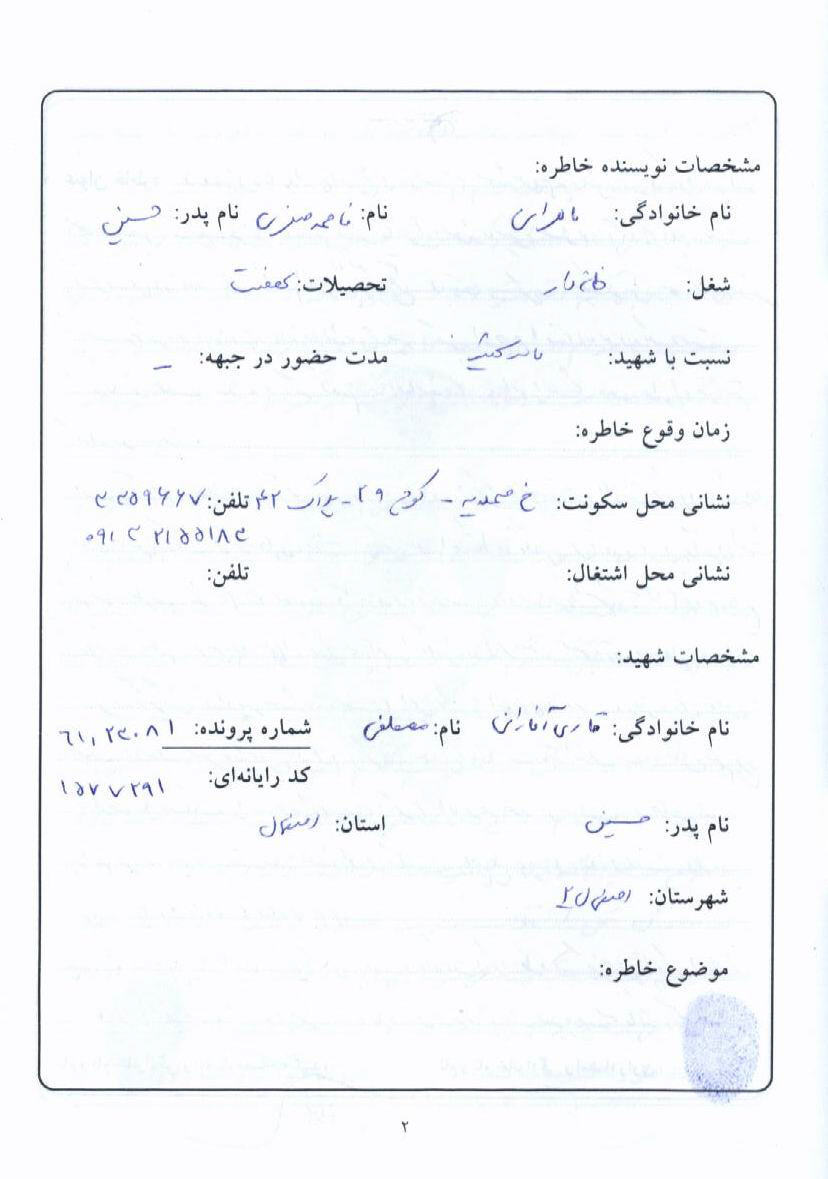 مشخصات نویسنده خاطره:
نام خانوادگی: ماهرانی نام: فاطمه صغری نام پدر: حسین
شغل: خانه دار تحصیلات:
نسبت با شهید: مادر مدت حضور در جبهه: –
زمان وقوع خاطره:
نشانی محل سکونت: خ صمدیه - کوی ۲۹ - پلاک ۴۲ تلفن: ۳۳۵۹۶۶۷
۰۹۱۳۲۱۵۵۱۸۴
نشانی محل اشتغال: تلفن:
مشخصات شهید:
نام خانوادگی: قاری آقارانی نام: مصطفی شماره پرونده: ۶۱,۲۳۰۸۱
کد رایانه‌ای: ۱۵۷۷۲۹۱
نام پدر: حسین استان: اصفهان
شهرستان: اصفهان ۲
موضوع خاطره:
۲